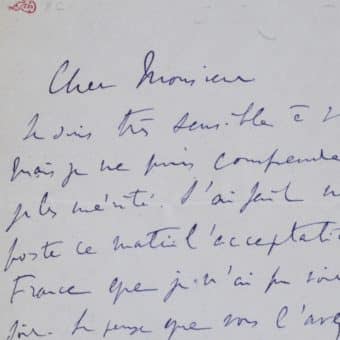 Cher Monsieur
Je suis très sensible à v
mais je ne puis comprendre
plus mérité. J'ai fait
poste ce matin l'acceptatio
France que je n'ai pu
soir. Je pense que vous l'ave